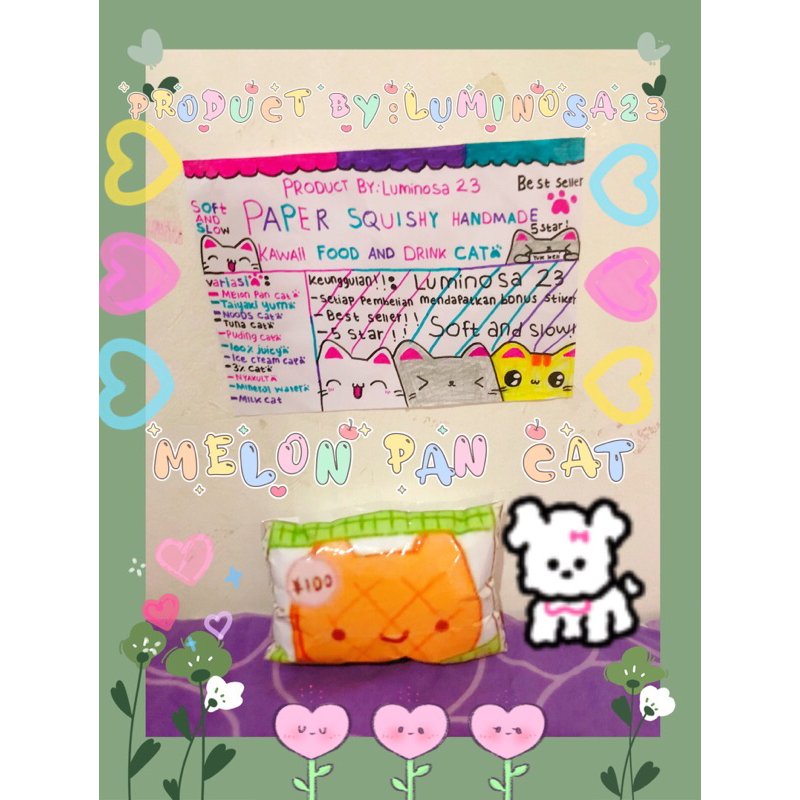 PRODUCT BY:LUMINOSA23
PRODUCT BY:Luminosa 23
Best seller
SOFt AND SLOW
PAPER SQUISHY HANDMADE
5 Star!
KAWAII FOOD AND DRINK CAT
variasi:
-MElon Pan cat
-Taiyaki yum
-NOODS cat
-Tuna cat
-Puding cat
-100% juicy
-Ice cream cat
-3% cat
-NYAKULT
-Mineral water
-Milk cat
keunggulan!!:
Luminosa 23
-Setiap Pembelian mendapatkan bonus Stiker
-Best seller!!
-5 Star!!!
Soft and slow!
MELON PAN CAT
¥100